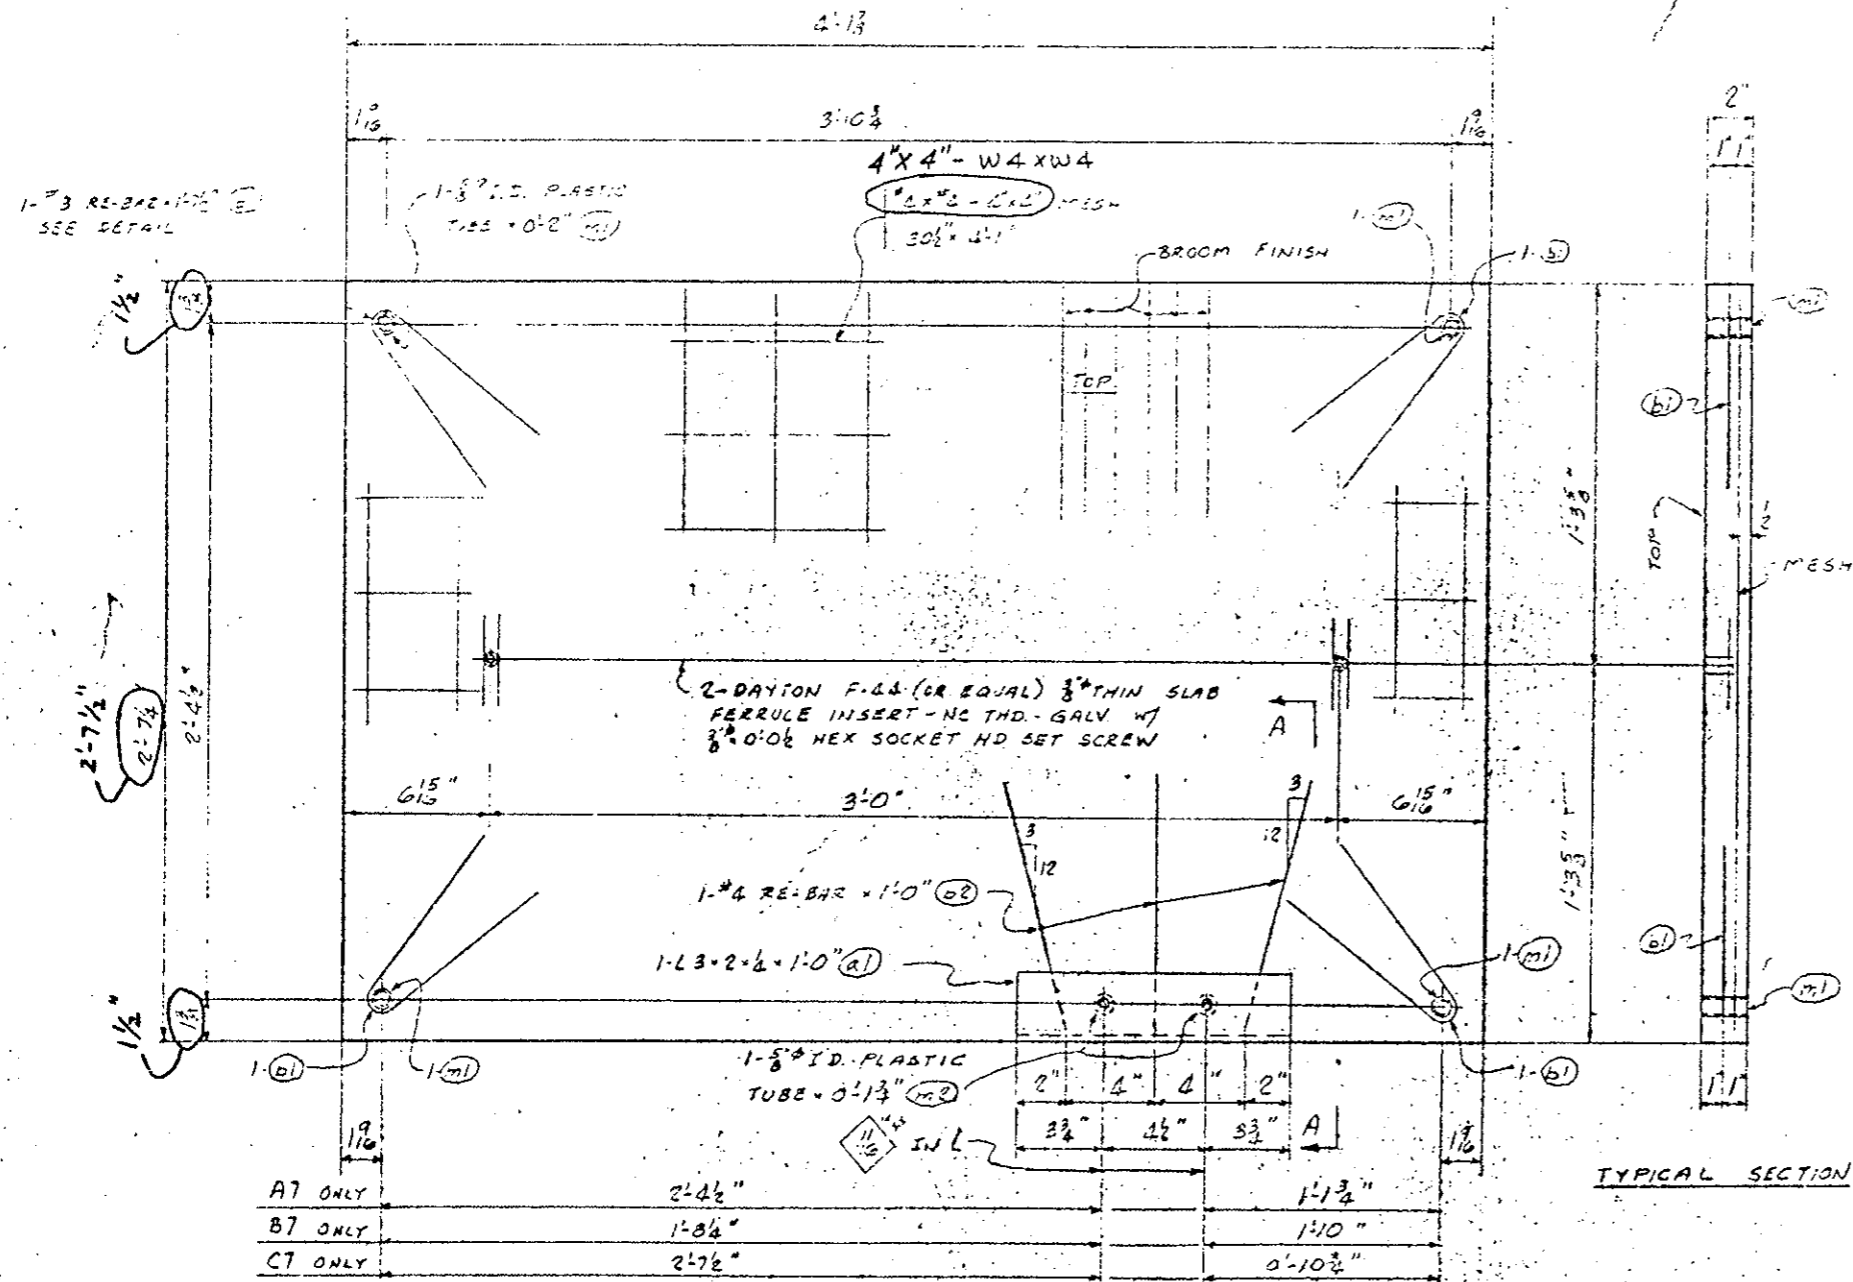 2"
1" 1"
3'-10 3/4
1 9/16
1 9/16
4" X 4" - W4 X W4
MESH
30 1/2" x 4'-1"
1-#3 RE-BAR
SEE DETAIL
I.D. PLASTIC
TUBE x 0'-2" m1
1-m1
BROOM FINISH
1 1/2"
1 3/4
TOP
m1
b1
1'-3 5/8"
TOP
1/2
MESH
2'-7 1/2"
2'-7 1/4
2'-4 1/2"
2-DAYTON F-44 (OR EQUAL) 3/8"⌀ THIN SLAB
FERRULE INSERT - NC THD. - GALV. W/
3/8"⌀ x 0'-0 1/2 HEX SOCKET HD SET SCREW
A
6 15/16"
3'-0"
6 15/16"
3
12
3
12
1'-3 5/8"
1-#4 RE-BAR x 1'-0" b2
1-L 3 x 2 x 1/4 x 1'-0" a1
1-m1
b1
m1
1 1/2"
1 3/4
1-b1
1-m1
1-5/8"⌀ I.D. PLASTIC
TUBE x 0'-1 3/4" m2
2" 4" 4" 2"
1-b1
1" 1"
3 3/4" 4 1/2" 3 3/4"
A
11/16"⌀ IN L
1 9/16
1 9/16
TYPICAL SECTION
A7 ONLY 2'-4 1/2" 1'-1 3/4"
B7 ONLY 1'-8 1/4" 1'-10"
C7 ONLY 2'-7 1/2" 0'-10 3/4"